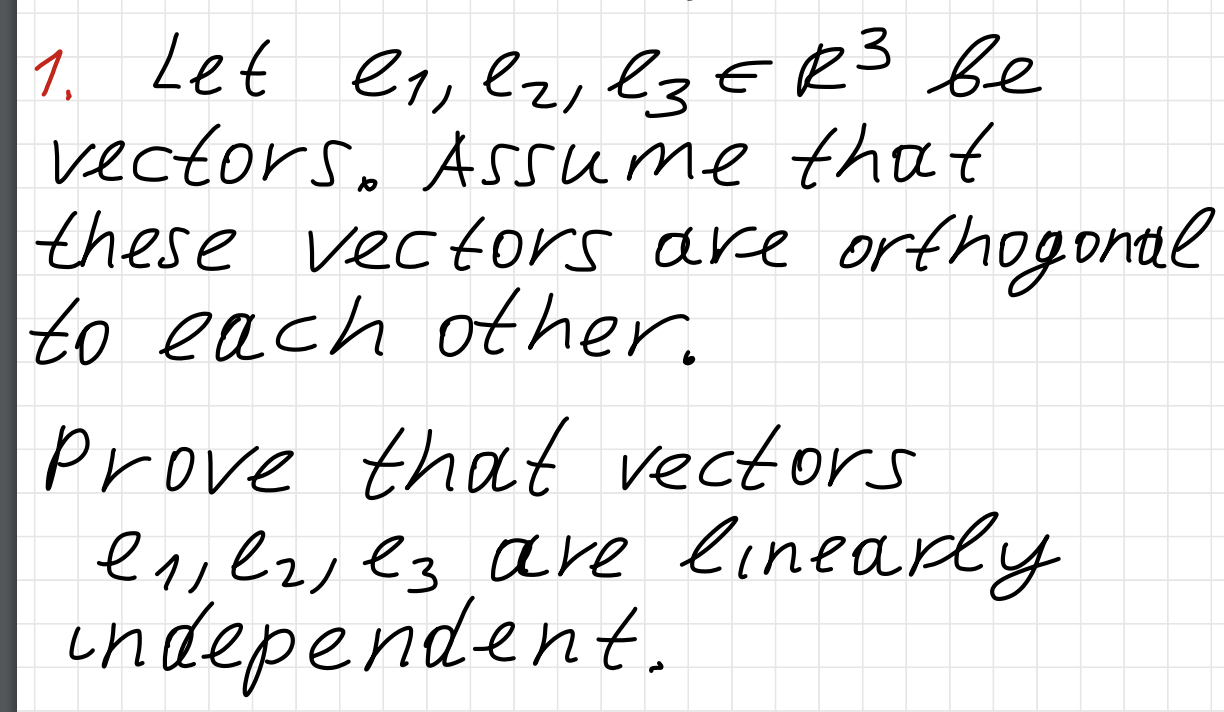 1. Let e₁, e₂, e₃ ∈ ℝ³ be
vectors. Assume that
these vectors are orthogonal
to each other.
Prove that vectors
e₁, e₂, e₃ are linearly
independent.